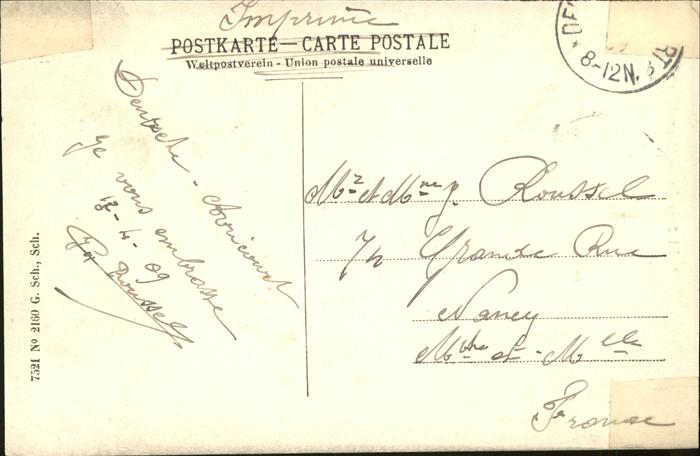 Imprimé
POSTKARTE — CARTE POSTALE
Weltpostverein - Union postale universelle
8-12N.
Deutsch - Avricourt
Je vous embrasse
18-4-09
Roussel
Mr et Mme J. Roussel
72 Grande Rue
Nancy
Mthe et Mlle
France
7521 No 2160 G. Sch., Sch.